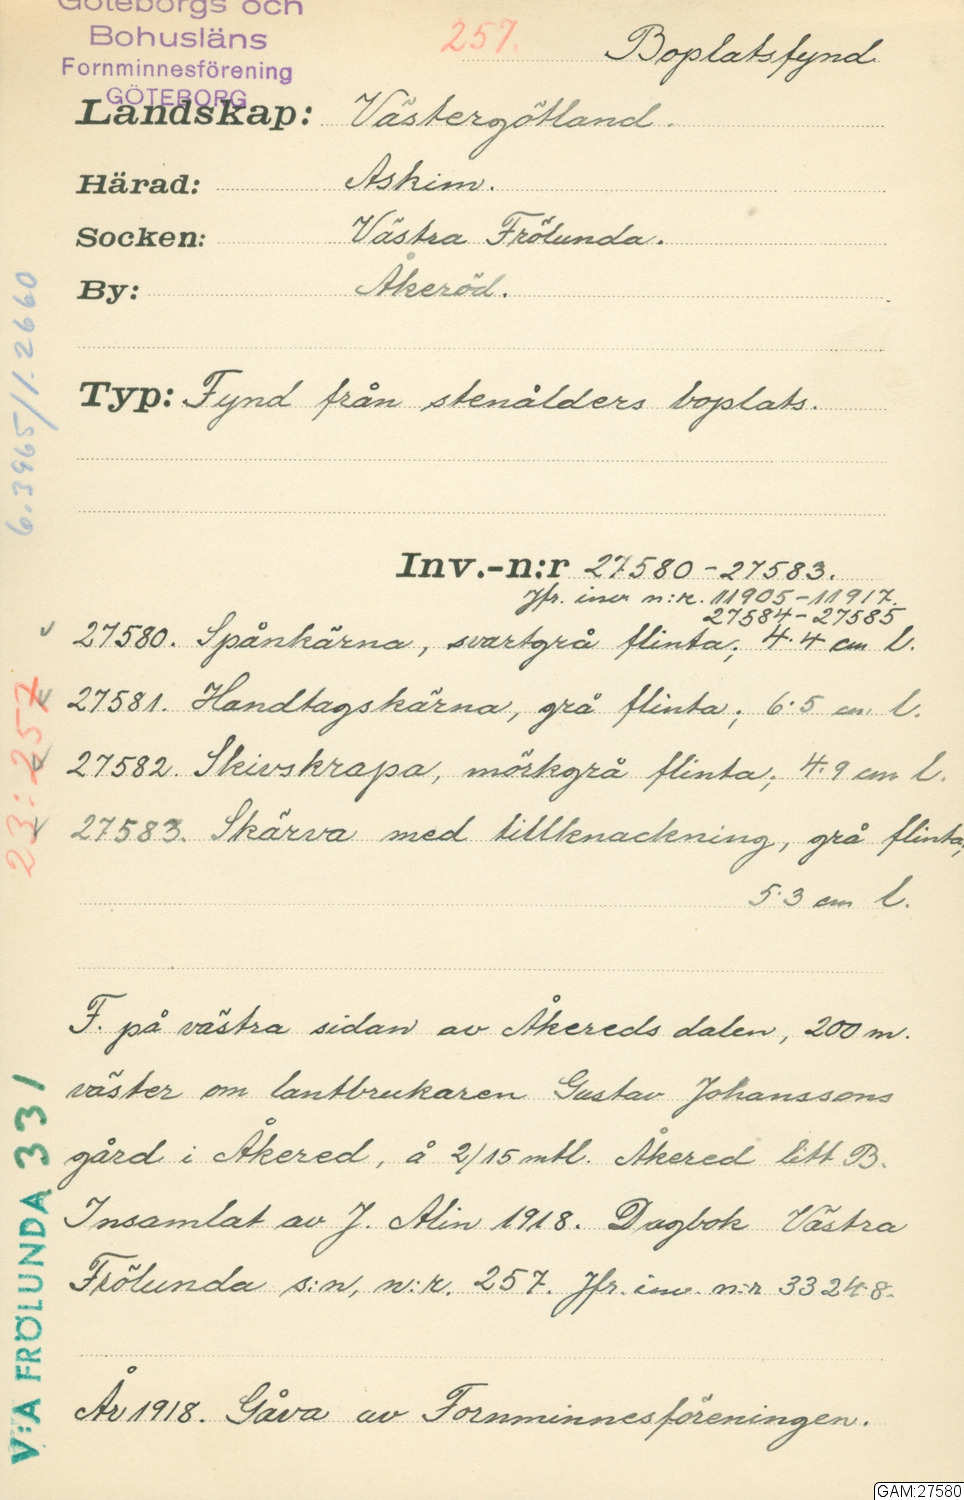 Göteborgs och
Bohusläns
Fornminnesförening
GÖTEBORG
257.
Boplatsfynd
Landskap: Västergötland.
Härad: Askim.
Socken: Västra Frölunda.
By: Åkeröd.
Typ: Fynd från stenålders boplats.
Inv.-n:r 27580-27583.
Jfr. inv n:r. 11905-11917.
27584-27585
27580. Spånkärna, svartgrå flinta; 4.4 cm l.
27581. Handtagskärna, grå flinta; 6.5 cm l.
27582. Skivskrapa, mörkgrå flinta; 4.9 cm l.
27583. Skärva med tillknackning, grå flinta;
5.3 cm l.
F. på västra sidan av Åkereds dalen, 200 m.
väster om lantbrukaren Gustav Johanssons
gård i Åkered, å 2/15 mtl. Åkered litt B.
Insamlat av J. Alin 1918. Dagbok Västra
Frölunda s:n, n:r. 257. Jfr. inv. n:r 33248.
År 1918. Gåva av Fornminnesföreningen.
6.3965/1.2660
23:257
V:A FRÖLUNDA 331
GAM:27580